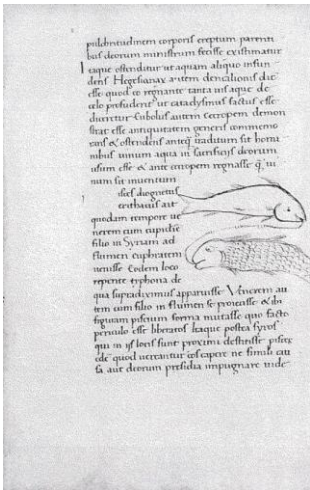 pulchritudinem corporis ereptum parenti
bus deorum ministrum fecisse existimatur
itaque ostenditur ut aquam aliquo infun
dens Hegesianax autem deucalionis dic
esse quod eo regnante tanta uis aque de
celo profuderit ut cataclysmus factus esse
diceretur Eubolus autem cecropem demon
strat esse antiquitatem generis commemo
rans & ostendens anteq traditum sit homi
nibus uinum aqua in sacrificiis deorum
usum esse & ante cecropem regnasse q ui
num sit inuentum
isces diognetus
erithraeus ait
quodam tempore ue
nerem cum cupidine
filio in Syriam ad
flumen euphratem
uenisse Eodem loco
repente typhona de
qua supradiximus apparuisse Venerem au
tem cum filio in flumen se proiecisse & ibi
figuram piscium forma mutasse quo facto
periculo esse liberatos Itaque postea syros
qui in iis locis sunt proximi destitisse pisces
ede quod uereantur eos capere ne simili cau
sa aut deorum presidia impugnare uide